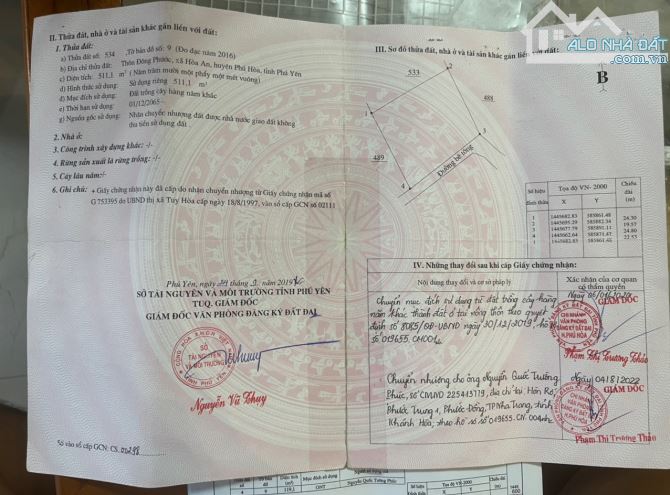 II. Thửa đất, nhà ở và tài sản khác gắn liền với đất:
1. Thửa đất:
a) Thửa đất số: 534 , Tờ bản đồ số: 9 (Đo đạc năm 2016)
b) Địa chỉ thửa đất: Thôn Đông Phước, xã Hòa An, huyện Phú Hòa, tỉnh Phú Yên
c) Diện tích: 511,1 m² (Năm trăm mười một phẩy một mét vuông)
d) Hình thức sử dụng: Sử dụng riêng 511,1 m²
đ) Mục đích sử dụng: Đất trồng cây hàng năm khác
e) Thời hạn sử dụng: 01/12/2065
g) Nguồn gốc sử dụng: Nhận chuyển nhượng đất được nhà nước giao đất không
thu tiền sử dụng đất
2. Nhà ở:
3. Công trình xây dựng khác: -/-
4. Rừng sản xuất là rừng trồng: -/-
5. Cây lâu năm:-/-
6. Ghi chú: + Giấy chứng nhận này đã cấp do nhận chuyển nhượng từ Giấy chứng nhận mã số
G 753395 do UBND thị xã Tuy Hòa cấp ngày 18/8/1997, vào sổ cấp GCN số 02111
Phú Yên, ngày 2019
SỞ TÀI NGUYÊN VÀ MÔI TRƯỜNG TỈNH PHÚ YÊN
TUQ. GIÁM ĐỐC
GIÁM ĐỐC VĂN PHÒNG ĐĂNG KÝ ĐẤT ĐAI
CỘNG HÒA X.H.C.N VIỆT
SỞ
TÀI NGUYÊN
VÀ MÔI TRƯỜNG
TỈNH PHÚ YÊN
Nguyễn Vũ Thuy
Số vào sổ cấp GCN: CS.
ALO NHÀ ĐẤT
III. Sơ đồ thửa đất, nhà ở và tài sản khác gắn liền với đất:
B
533
2
488
1
3
489
4
Đường bê tông
Số hiệu
đỉnh thửa
Tọa độ VN- 2000
X
Chiều
dài
(m)
1 1445682.83 585861.48
24.30
2 1445695.29 585882.34
19.57
3 1445677.79 585891.11
24.80
4 1445662.64 585871.47
22.53
1 1445682.83 585861.48
IV. Những thay đổi sau khi cấp Giấy chứng nhận:
Nội dung thay đổi và cơ sở pháp lý
Xác nhận của cơ quan
có thẩm quyền
Chuyển mục đích sử dụng từ đất trồng cây hàng
năm khác thành đất ở tại nông thôn theo quyết
định số 8085/QĐ-UBND ngày 30/12/2019, hồ sơ
số 019655.CN004
GIÁM ĐỐC
CHI NHÁNH
VĂN PHÒNG
ĐĂNG KÝ ĐẤT ĐAI
H.PHÚ HÒA
Phạm Thị Trương Thảo
Chuyển nhượng cho ông Nguyễn Quốc Trường
Phúc, số CMND 225415719, địa chỉ tại, Hòn Rớ,
Phước Trung 1, Phước Đồng, TP Nha Trang, tỉnh
Khánh Hòa, theo hồ sơ số 019655. CN. 004
Ngày 04/8/2022
GIÁM ĐỐC
CHI NHÁNH
VĂN PHÒNG
ĐĂNG KÝ ĐẤT ĐAI
H.PHÚ HÒA
Phạm Thị Trương Thảo
ONT
Nguyễn Quốc Trường Phúc